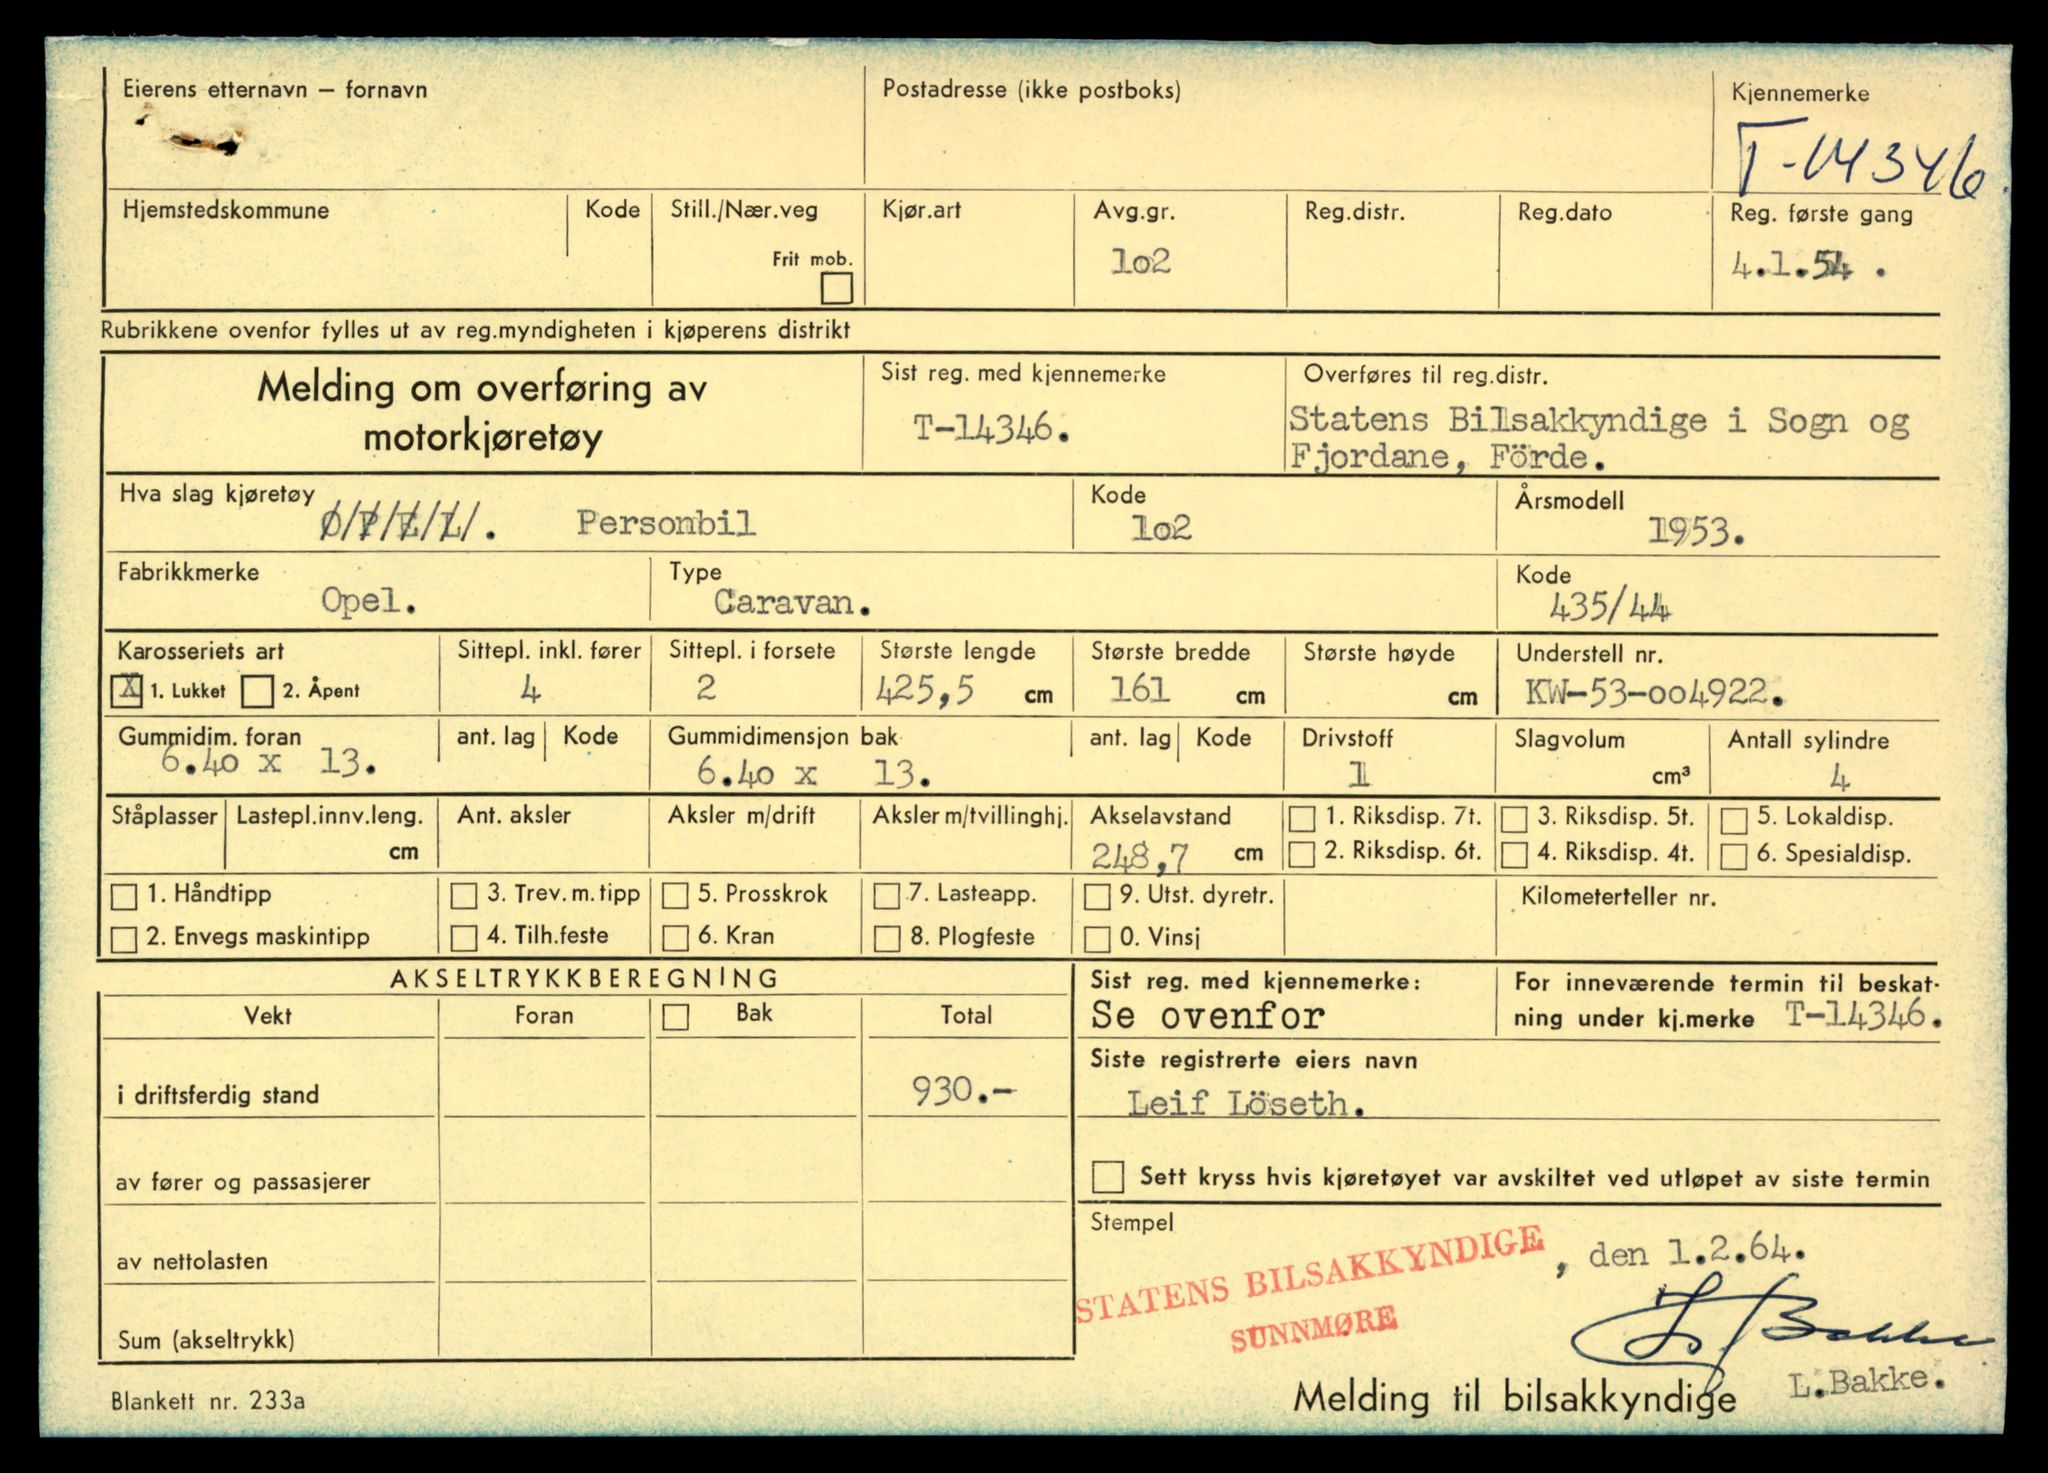 Eierens etternavn – fornavn
Postadresse (ikke postboks)
Kjennemerke
T-14346.
Hjemstedskommune
Kode
Still./Nær.veg
Frit mob.
Kjør.art
Avg.gr.
lo2
Reg.distr.
Reg.dato
Reg. første gang
4.1.54 .
Rubrikkene ovenfor fylles ut av reg.myndigheten i kjøperens distrikt
Melding om overføring av
motorkjøretøy
Sist reg. med kjennemerke
T-14346.
Overføres til reg.distr.
Statens Bilsakkyndige i Sogn og
Fjordane, Förde.
Hva slag kjøretøy
O/P/E/L/. Personbil
Kode
lo2
Årsmodell
1953.
Fabrikkmerke
Opel.
Type
Caravan.
Kode
435/44
Karosseriets art
X 1. Lukket 2. Åpent
Sittepl. inkl. fører
4
Sittepl. i forsete
2
Største lengde
425,5 cm
Største bredde
161 cm
Største høyde
cm
Understell nr.
KW-53-oo4922.
Gummidim. foran
6.40 x 13.
ant. lag
Kode
Gummidimensjon bak
6.40 x 13.
ant. lag
Kode
Drivstoff
1
Slagvolum
cm³
Antall sylindre
4
Ståplasser
Lastepl.innv.leng.
cm
Ant. aksler
Aksler m/drift
Aksler m/tvillinghj.
Akselavstand
248,7 cm
1. Riksdisp. 7t.
2. Riksdisp. 6t.
3. Riksdisp. 5t.
4. Riksdisp. 4t.
5. Lokaldisp.
6. Spesialdisp.
1. Håndtipp
2. Envegs maskintipp
3. Trev. m. tipp
4. Tilh.feste
5. Prosskrok
6. Kran
7. Lasteapp.
8. Plogfeste
9. Utst. dyretr.
0. Vinsj
Kilometerteller nr.
AKSELTRYKKBEREGNING
Vekt
Foran
Bak
Total
i driftsferdig stand
930.-
av fører og passasjerer
av nettolasten
Sum (akseltrykk)
Sist reg. med kjennemerke:
Se ovenfor
For inneværende termin til beskat-
ning under kj.merke T-14346.
Siste registrerte eiers navn
Leif Löseth.
Sett kryss hvis kjøretøyet var avskiltet ved utløpet av siste termin
Stempel
STATENS BILSAKKYNDIGE
SUNNMØRE
, den 1.2.64.
L. Bakke
L.Bakke.
Blankett nr. 233a
Melding til bilsakkyndige